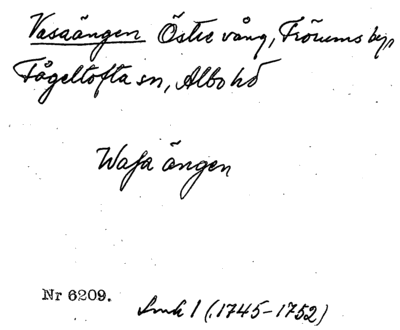 Vasaängen Östre vång, Frörums by,
Fågeltofta sn, Albo hd
Wasa ängen
Nr 6209.
Lmk 1 (1745-1752)